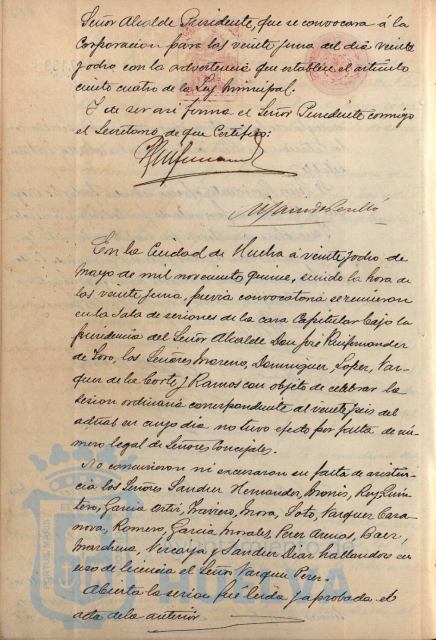 Señor Alcalde Presidente, que se convocara á la
Corporacion para las veinte y una del dia veinte
y ocho con la advertencia que establece el articulo
ciento cuatro de la Ley Municipal.
Y de ser asi firma el Señor Presidente conmigo
el Secretario, de que Certifico:
En la Ciudad de Huelva á veinte y ocho de
Mayo de mil novecientos quince, siendo la hora de
las veinte y una, previa convocatoria se reunieron
en la Sala de sesiones de la casa Capitular bajo la
presidencia del Señor Alcalde Don José Ruifernandez
de Toro, los Señores Moreno, Dominguez, Lopez, Vaz-
quez de la Corte y Ramos con objeto de celebrar la
sesion ordinaria correspondiente al veinte y seis del
actual en cuyo dia no tuvo efecto por falta de nú-
mero legal de Señores Concejales.
No concurrieron ni escusaron su falta de asisten-
cia los Señores Sanchez Hernandez, Ruy Quin-
tero, Garcia Mora, Soto, Vazquez Casa-
nova, Romero, Garcia Morales, Perez Baez,
Marchena, Vizcaya y Sanchez Diaz hallandose en
uso de licencia el Señor Vazquez Perez.
Abierta la sesion fué leida y aprobada el
acta de la anterior.